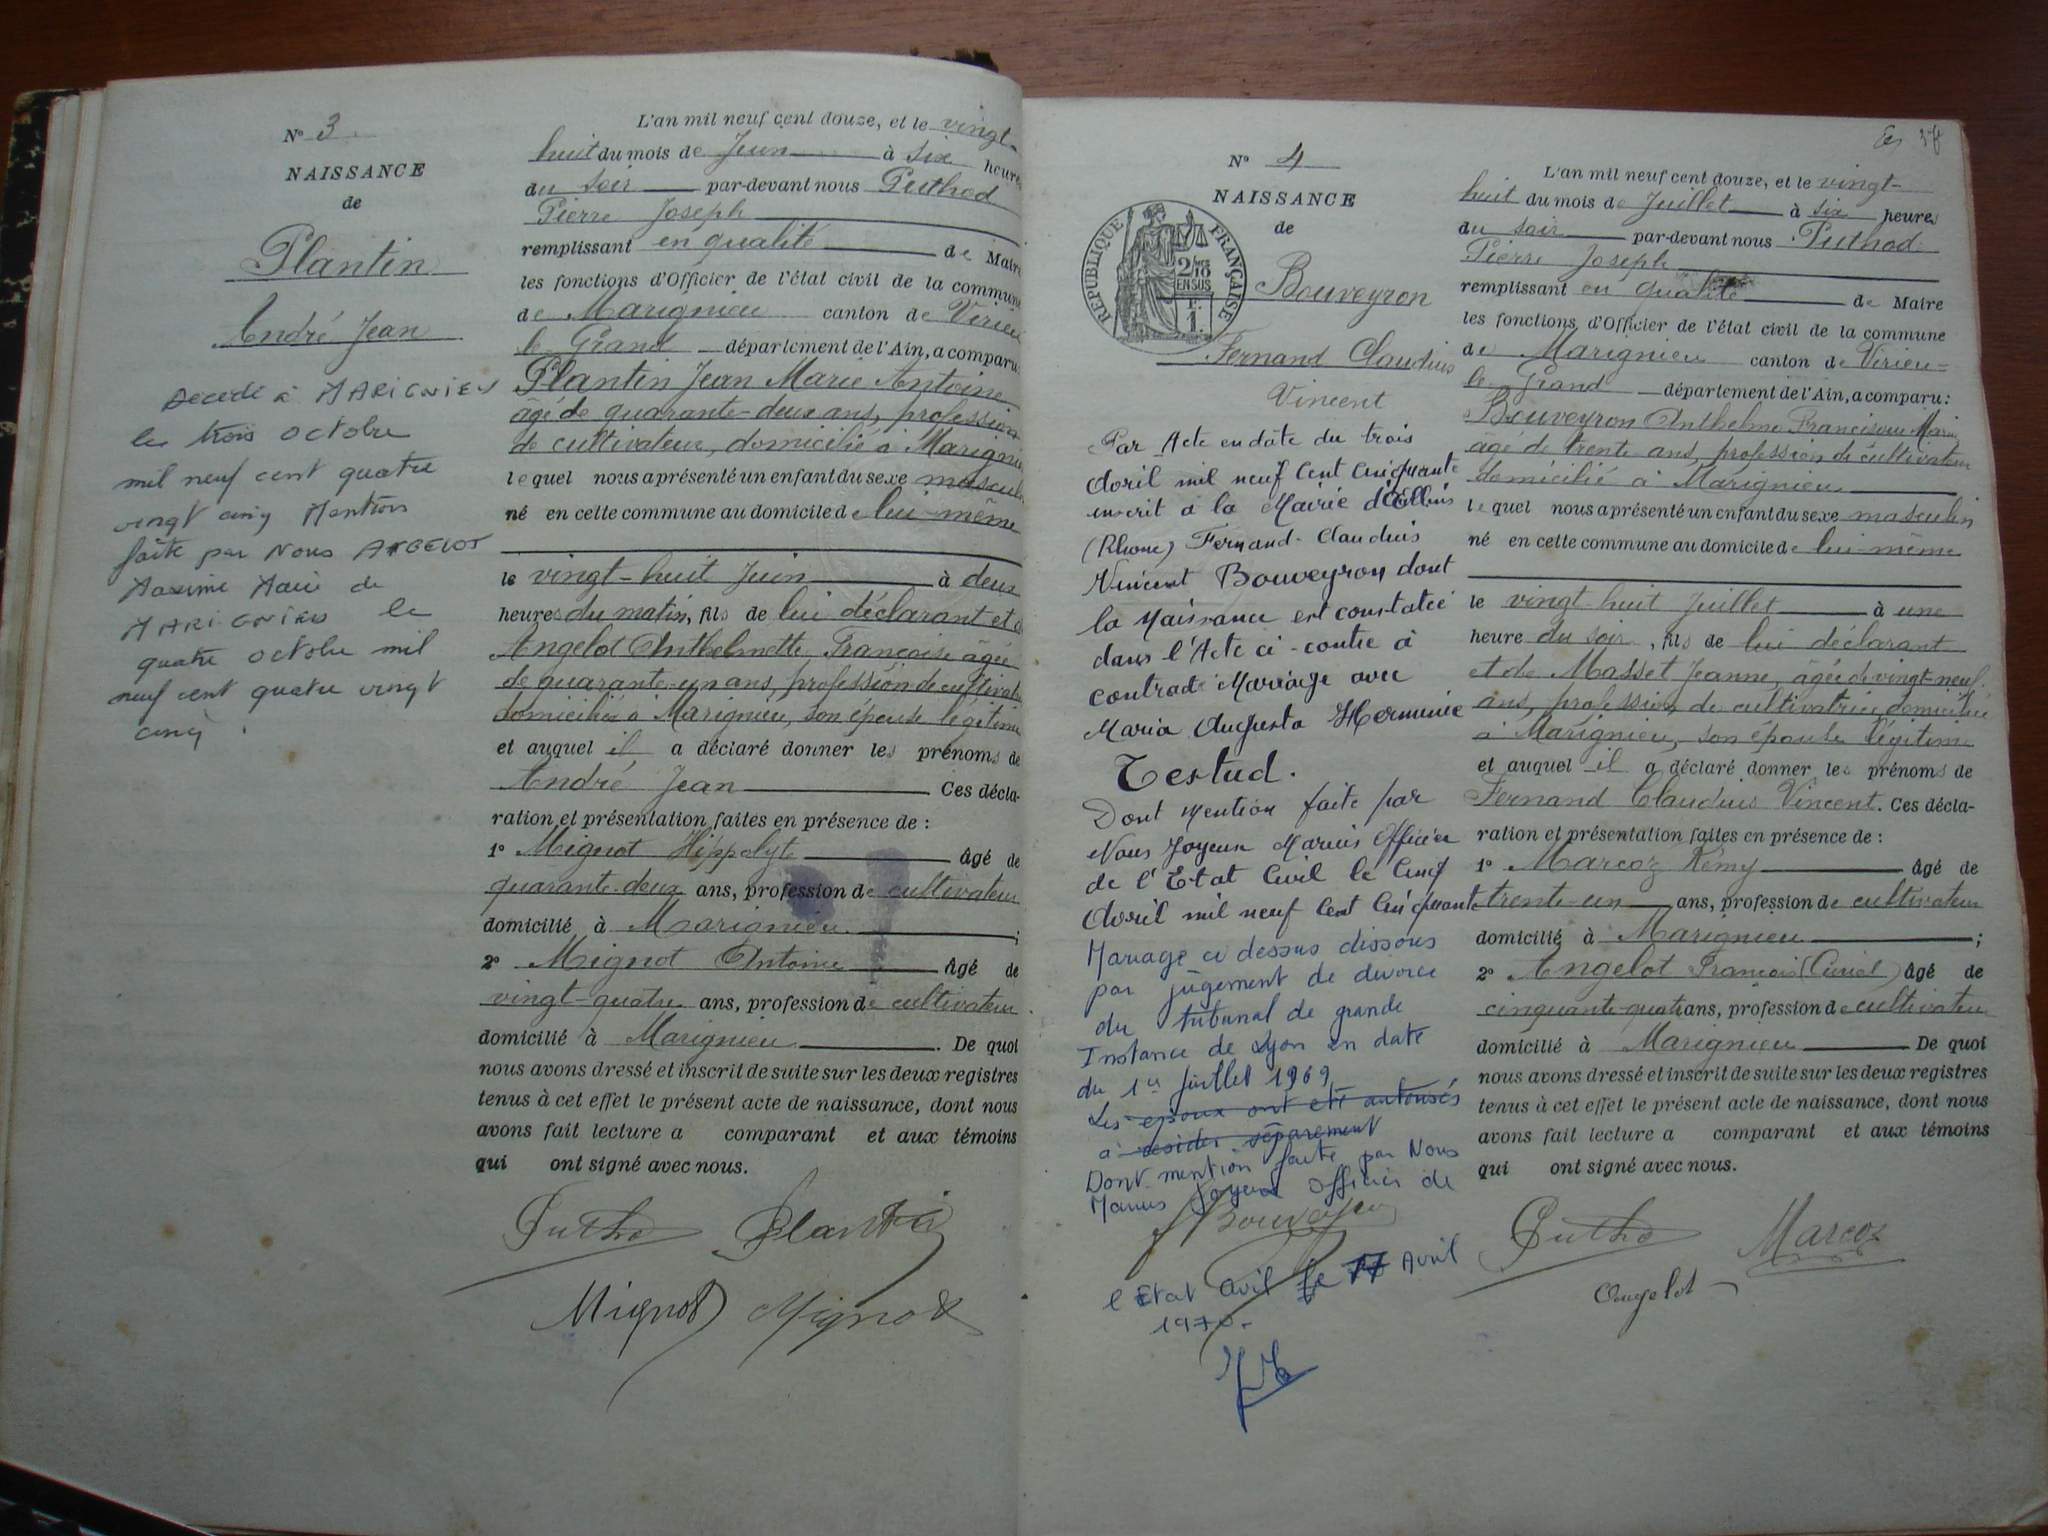 N° 3
NAISSANCE
de
Plantin
André Jean
Décédé à MARIGNIEU
le trois octobre
mil neuf cent quatre
vingt cinq Mention
faite par Nous ANGELOT
Maxime Maire de
MARIGNIEU le
quatre octobre mil
neuf cent quatre vingt
cinq.
L'an mil neuf cent douze, et le vingt-
huit du mois de Juin à six heures
du soir par-devant nous Puthod
Pierre Joseph
remplissant en qualité de Maire
les fonctions d'Officier de l'état civil de la commune
de Marignieu canton de Virieu
le Grand département de l'Ain, a comparu:
Plantin Jean Marie Antoine
âgé de quarante-deux ans, profession
de cultivateur, domicilié à Marignieu
lequel nous a présenté un enfant du sexe masculin
né en cette commune au domicile de lui-même
le vingt-huit Juin à deux
heures du matin, fils de lui déclarant et de
Angelot Anthelmette Françoise âgée
de quarante-un ans, profession de cultivatrice
domiciliée à Marignieu, son épouse légitime
et auquel il a déclaré donner les prénoms de
André Jean Ces décla-
ration et présentation faites en présence de :
1° Mignot Hippolyte âgé de
quarante-deux ans, profession de cultivateur
domicilié à Marignieu ;
2° Mignot Antoine âgé de
vingt-quatre ans, profession de cultivateur
domicilié à Marignieu . De quoi
nous avons dressé et inscrit de suite sur les deux registres
tenus à cet effet le présent acte de naissance, dont nous
avons fait lecture a comparant et aux témoins
qui ont signé avec nous.
Puthod Plantin
Mignot Mignot
N° 4
NAISSANCE
de
RÉPUBLIQUE FRANÇAISE
2/10
EN SUS
F.
1.
Bouveyron
Fernand Claudius
Vincent
Par Acte en date du trois
Avril mil neuf cent cinquante
inscrit à la Mairie d'Oullins
(Rhone) Fernand-Claudius
Vincent Bouveyron dont
la Naissance est constatée
dans l'Acte ci-contre à
contracté Mariage avec
Maria Augusta Herminie
Testud.
Dont Mention faite par
Nous Joyeux Marius Officier
de l'Etat Civil le Cinq
Avril mil neuf Cent Cinquante
Mariage ci dessus dissous
par jugement de divorce
du tribunal de grande
Instance de Lyon en date
du 1er Juillet 1969
Les époux ont été autorisés
à résider séparément
Dont mention faite par Nous
Marius Joyeux Officier de
Bouveyron
l'Etat Civil le 17 Avril
1970.
L'an mil neuf cent douze, et le vingt-
huit du mois de Juillet à six heures
du soir par-devant nous Puthod
Pierre Joseph
remplissant en qualité de Maire
les fonctions d'Officier de l'état civil de la commune
de Marignieu canton de Virieu-
le Grand département de l'Ain, a comparu:
Bouveyron Anthelme Francisque Marie
âgé de trente ans, profession de cultivateur
domicilié à Marignieu
lequel nous a présenté un enfant du sexe masculin
né en cette commune au domicile de lui-même
le vingt-huit Juillet à une
heure du soir, fils de lui déclarant
et de Masset Jeanne, âgée de vingt-neuf
ans, profession de cultivatrice domiciliée
à Marignieu, son épouse légitime
et auquel il a déclaré donner les prénoms de
Fernand Claudius Vincent. Ces décla-
ration et présentation faites en présence de :
1° Marcoz Rémy âgé de
trente-un ans, profession de cultivateur
domicilié à Marignieu ;
2° Angelot François (Curial) âgé de
cinquante-quatre ans, profession de cultivateur
domicilié à Marignieu De quoi
nous avons dressé et inscrit de suite sur les deux registres
tenus à cet effet le présent acte de naissance, dont nous
avons fait lecture a comparant et aux témoins
qui ont signé avec nous.
Puthod Marcoz
Angelot